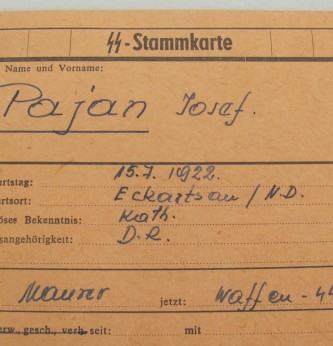 SS-Stammkarte
Name und Vorname:
Pajan Josef.
urtstag: 15.7.1922.
urtsort: Eckartsau / N.D.
iöses Bekenntnis: Kath.
sangehörigkeit: D.R.
Maurer jetzt: Waffen-SS
erw., gesch., verh. seit: mit